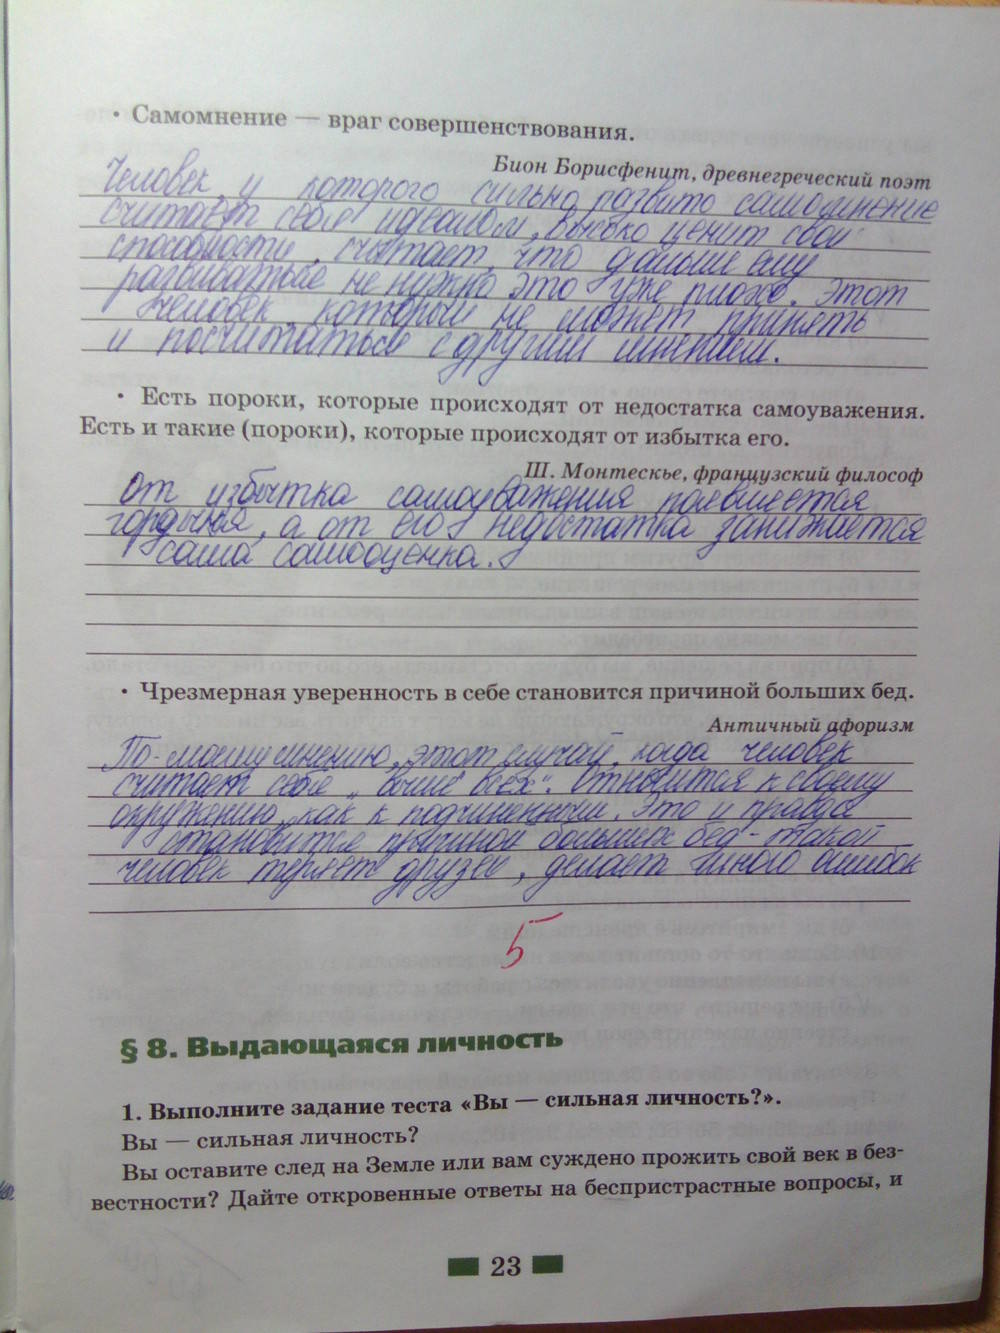 • Самомнение — враг совершенствования.
Бион Борисфенит, древнегреческий поэт
Человек у которого сильно развито самомнение
считает себя идеалом, высоко ценит свои
способности, считает, что дальше ему
развиваться не нужно это уже плохо. Этот
человек который не может принять
и посчитаться с другим мнением.
• Есть пороки, которые происходят от недостатка самоуважения.
Есть и такие (пороки), которые происходят от избытка его.
Ш. Монтескье, французский философ
От избытка самоуважения появляется
гордыня, а от его недостатка занижается
сама самооценка.
• Чрезмерная уверенность в себе становится причиной больших бед.
Античный афоризм
По-моему мнению, этот случай, когда человек
считает себя „выше всех“. Относится к своему
окружению, как к подчиненным. Это и правда
становится причиной больших бед - такой
человек теряет друзей, делает много ошибок
5
§ 8. Выдающаяся личность
1. Выполните задание теста «Вы — сильная личность?».
Вы — сильная личность?
Вы оставите след на Земле или вам суждено прожить свой век в без-
вестности? Дайте откровенные ответы на беспристрастные вопросы, и
23